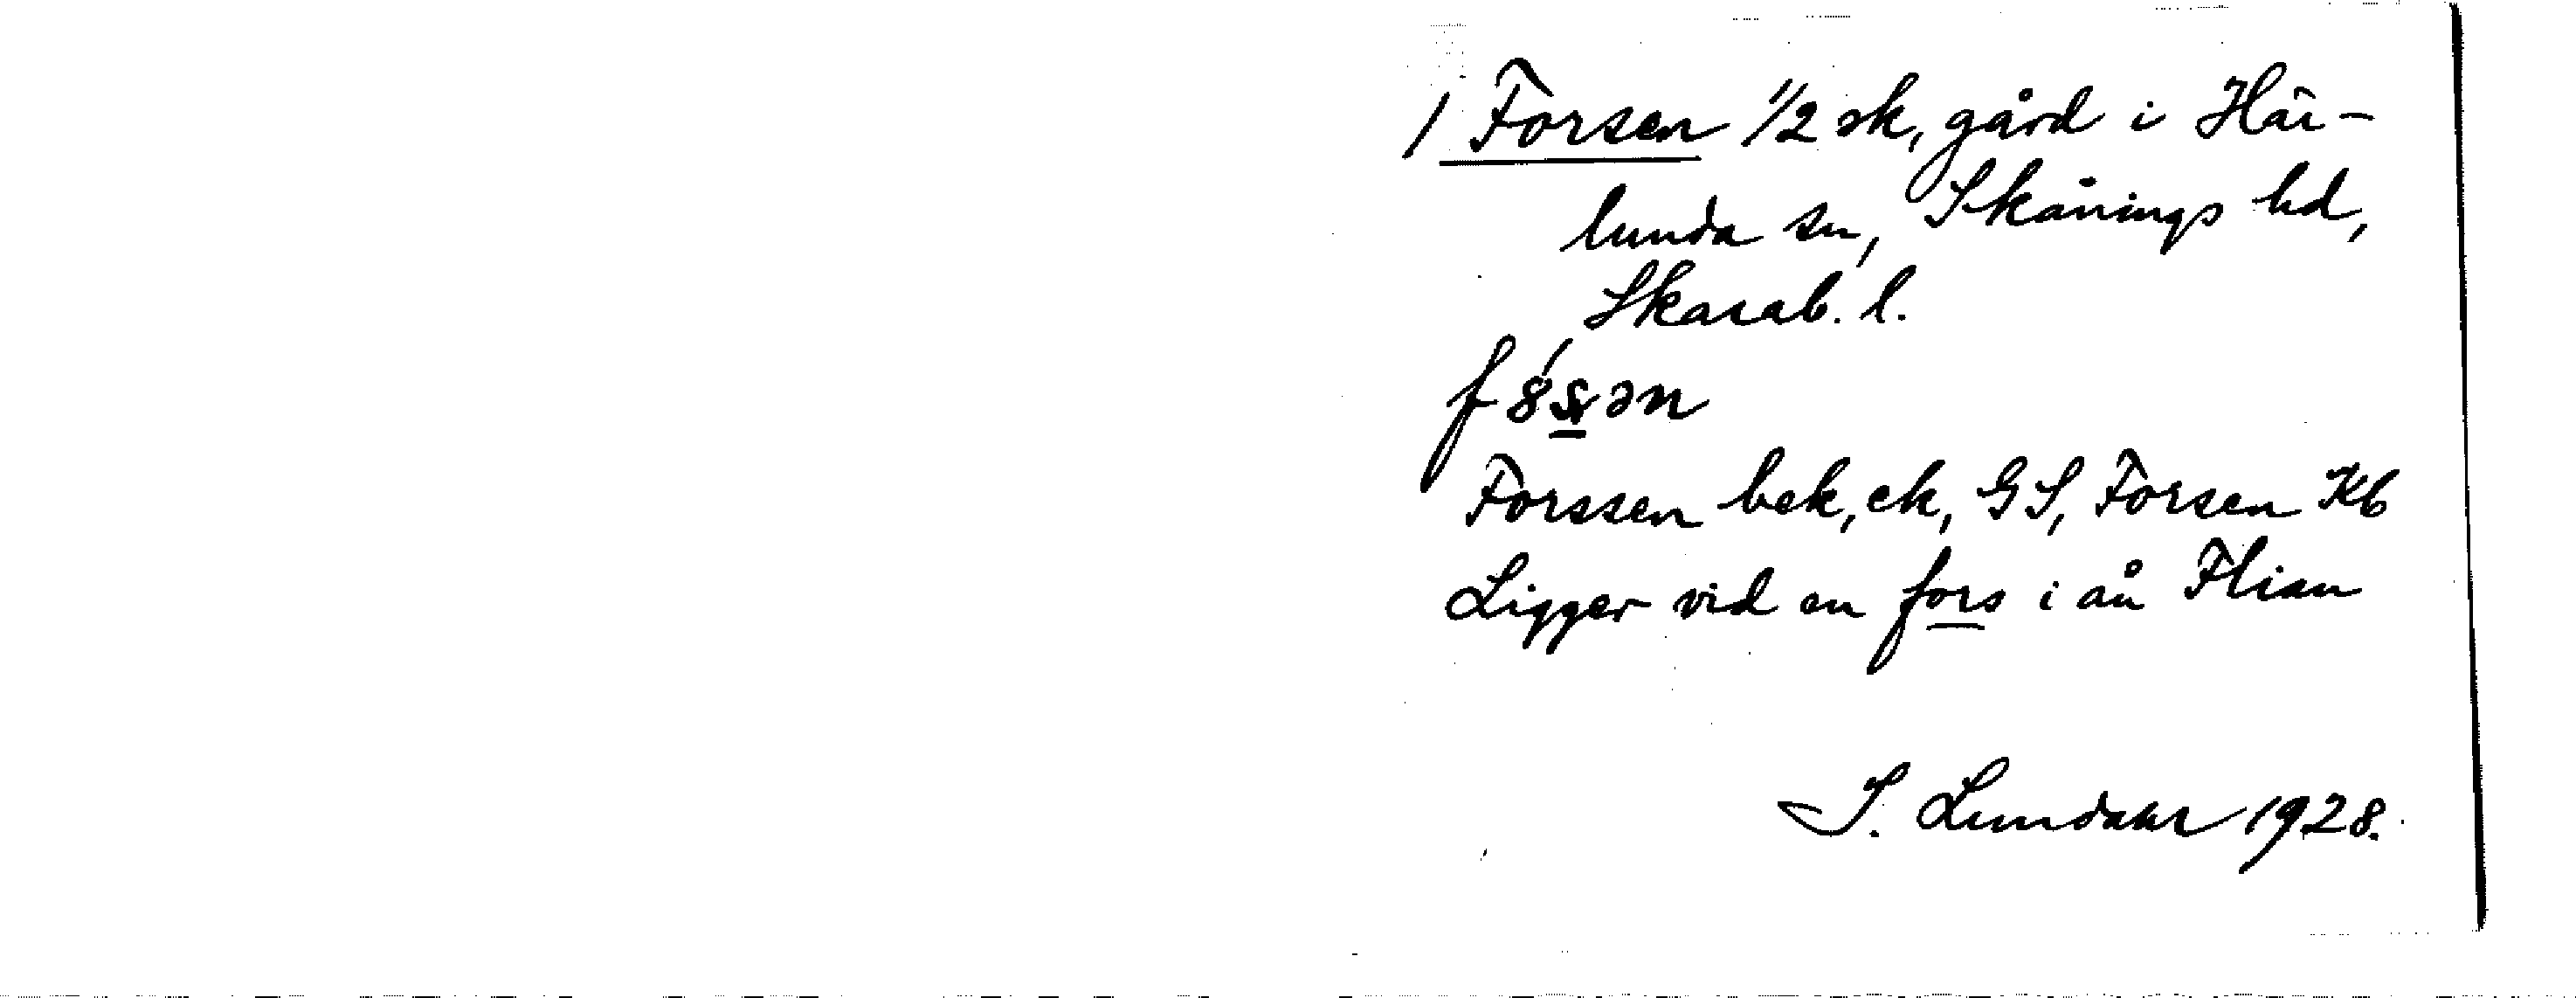 / Forsen 1/2 sk, gård i Här-
lunda sn, Skånings hd,
Skarab. l.
f8́s̲ən
Forssen bek, ek, GS, Forsen Kb
Ligger vid en fors i ån Flian
S. Lundahl 1928.